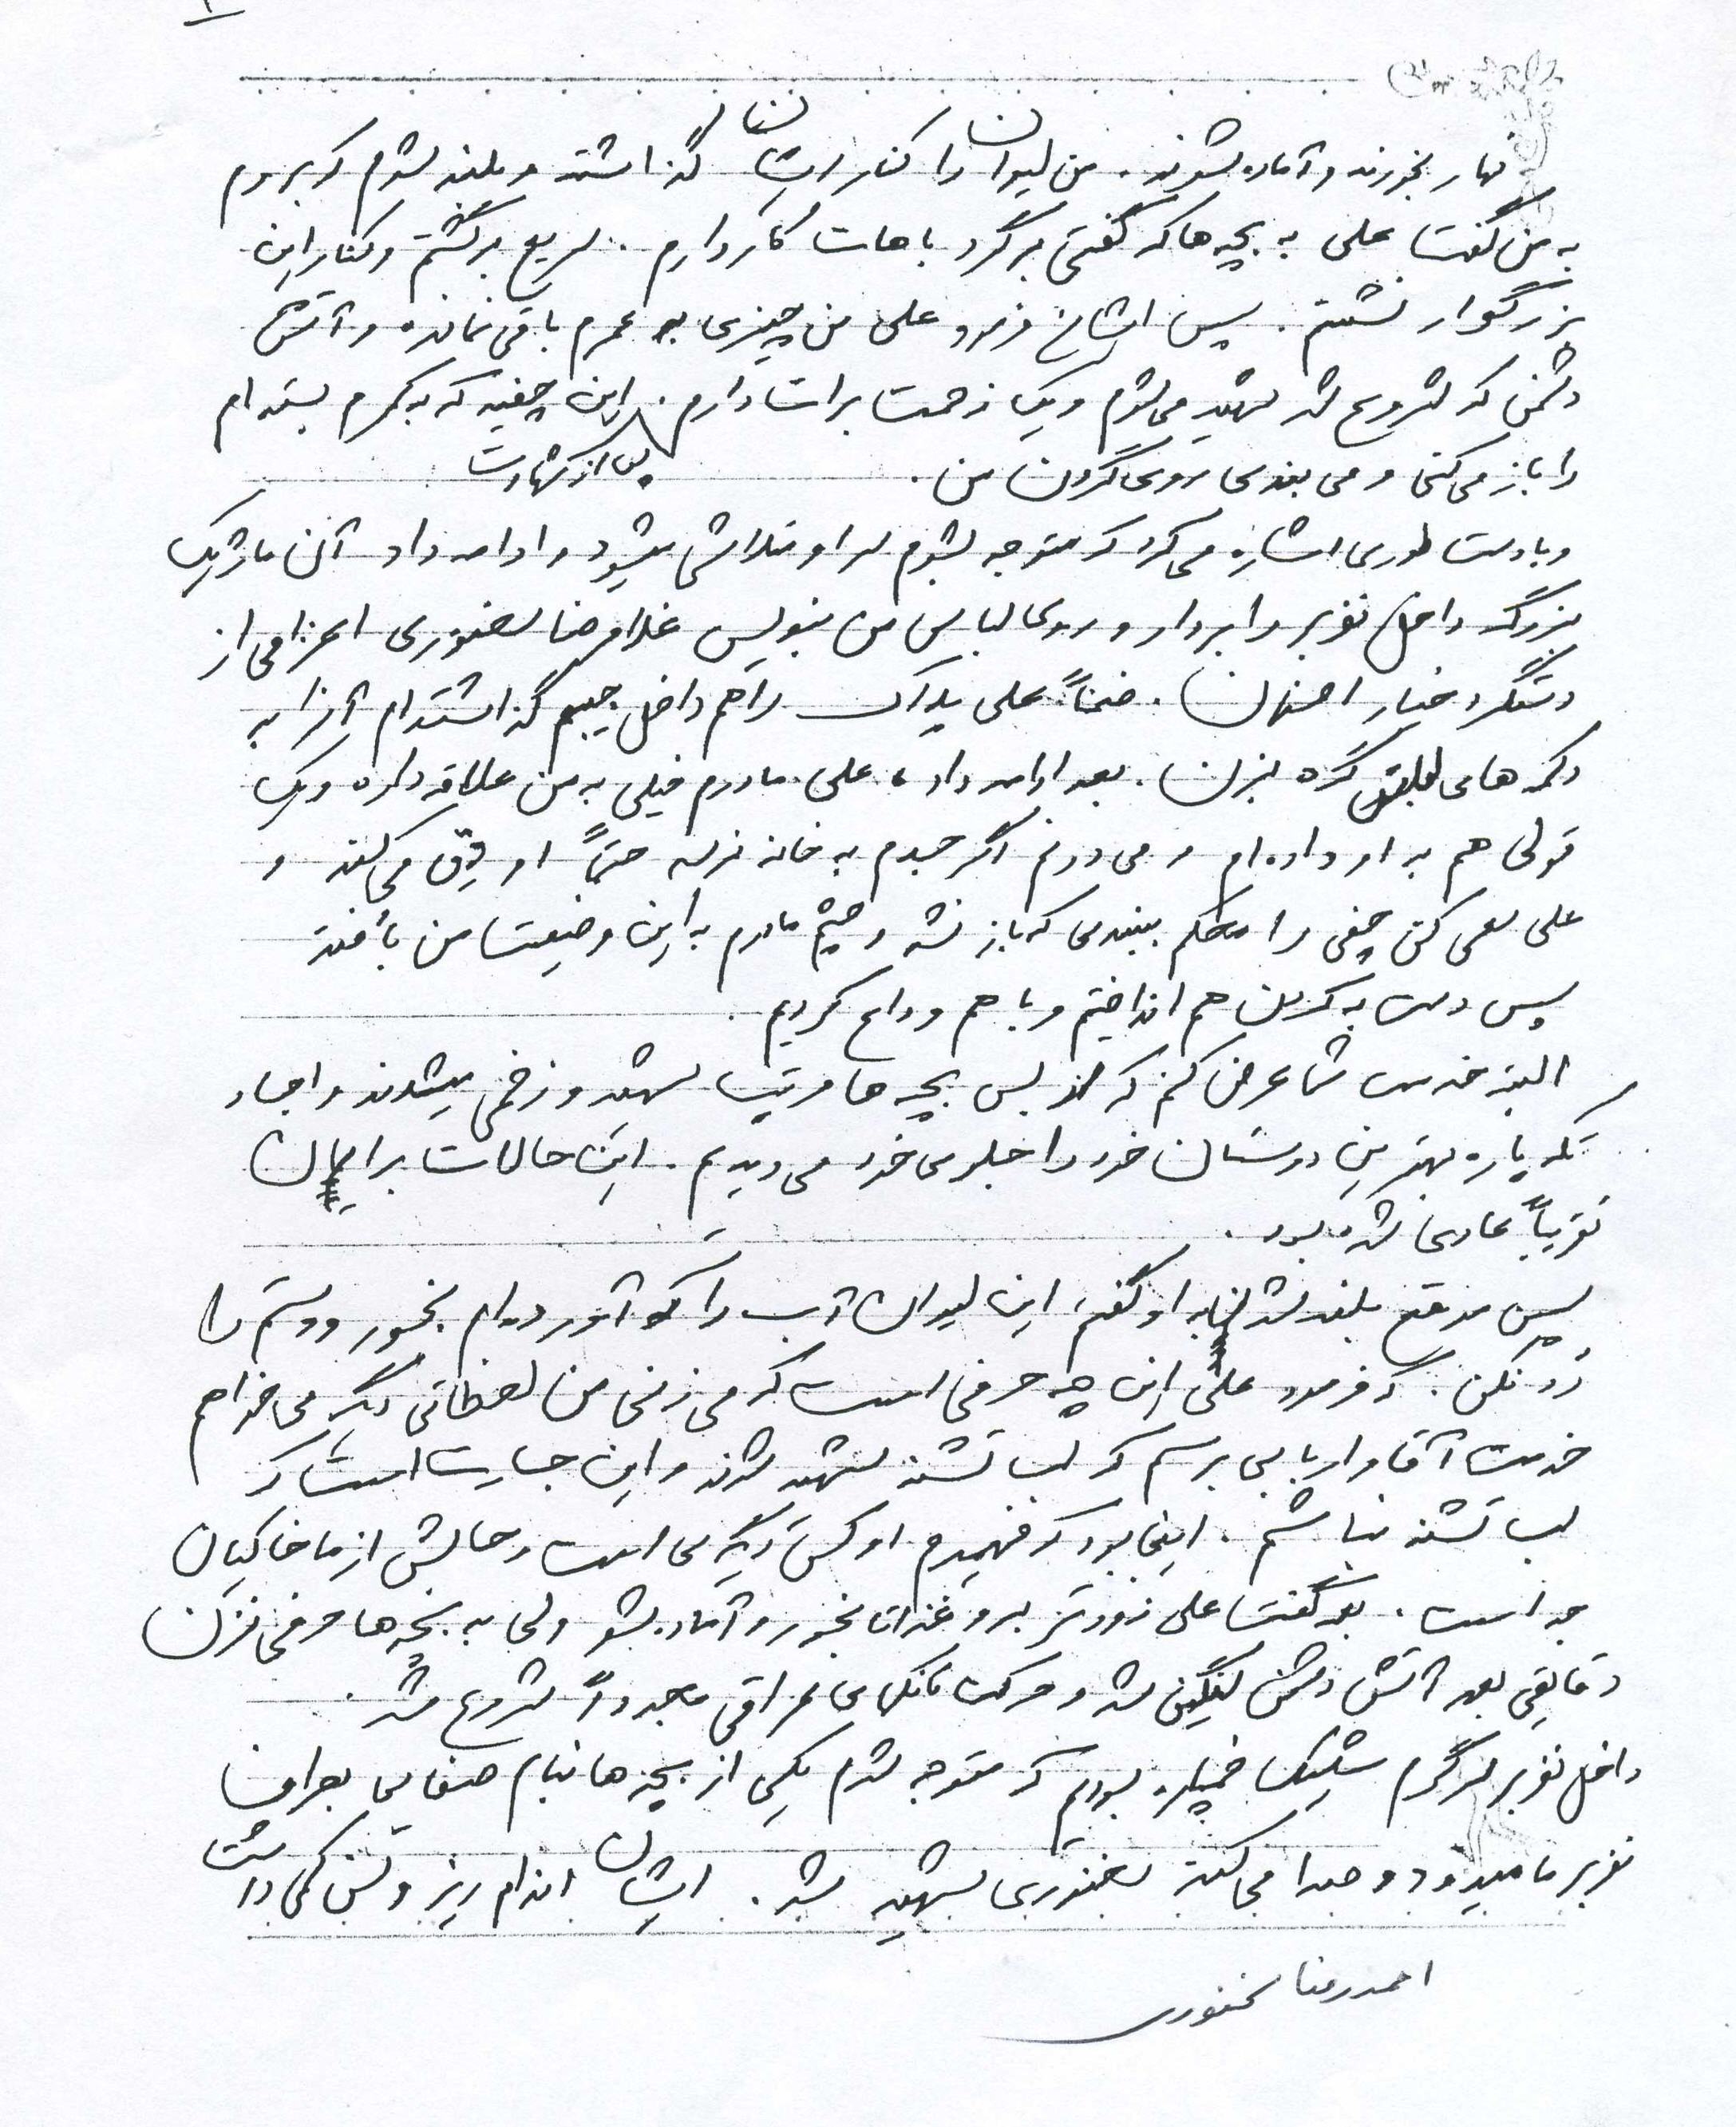 نهار بخورند و آماده بشوند. من لیوان را کنار ایشان گذاشته و بلند شدم که بروم
به من گفت علی به بچه‌ها که گفتی برگرد باهات کار دارم. سریع برگشتم و کنار این
بزرگوار نشستم. پس ایشان فرمود علی من چیزی به عمرم باقی نمانده و آتش
دشمن که شروع شد شهید می‌شوم و یک زحمت برات دارم. این چفیه که به کمرم بسته‌ام
پس از شهادت
را باز می‌کنی و می‌بندی روی گردن من.
و با دست طوری اشاره می‌کرد که متوجه بشوم سر او متلاشی میشود و ادامه داد آن ماژیک
بزرگ داخل نفربر را بردار و روی لباس من بنویس غلامرضا اعزامی از
دستگرد خیار اصفهان. ضمناً علی پلاک را هم داخل جیبم گذاشته‌ام آنرا به
دکمه‌های گره بزن. بعد ادامه داد، علی مادرم خیلی به من علاقه داره و یک
قولی هم به او داده‌ام و می‌دونم اگر جسدم به خانه نرسه حتماً او دق می‌کند و
علی سعی کن چفی را محکم ببندی که باز نشه و چشم مادرم به این وضعیت من نأفتد
پس دست به گردن هم انداختیم و با هم وداع کردیم.
البته خدمت شما عرض کنم که از بس بچه‌ها مرتب شهید و زخمی میشدند و اجساد
تکه پاره بهترین دوستان خود را جلوی خود می‌دیدیم. این حالات برایمان
تقریباً عادی شده بود.
پس موقع بلند شدن به او گفتم این لیوان آب را که آورده‌ام بخور و دستم را
رد نکن. که فرمود علی این چه حرفی است که می‌زنی من لحظاتی دیگر می‌خواهم
خدمت آقا و اربابی برسم که لب تشنه شهید شدند و این جسارت است که
لب تشنه نباشم. اینجا بود که فهمیدم او کس دیگری است و حالش از ما خاکیان
جداست. بعد گفت علی زودتر برو غذات بخور و آماده بشو ولی به بچه‌ها حرفی نزن
دقایقی بعد آتش دشمن سنگین شد و حرکت تانکهای عراقی مجدداً شروع شد.
داخل نفربر سرگرم شلیک خمپاره بودم که متوجه شدم یکی از بچه‌ها بنام صفایی بطرف
نفربر ما میدود و صدا می‌کند شهید شد. ایشان اندام ریز و سن کمی داشت
احمدرضا